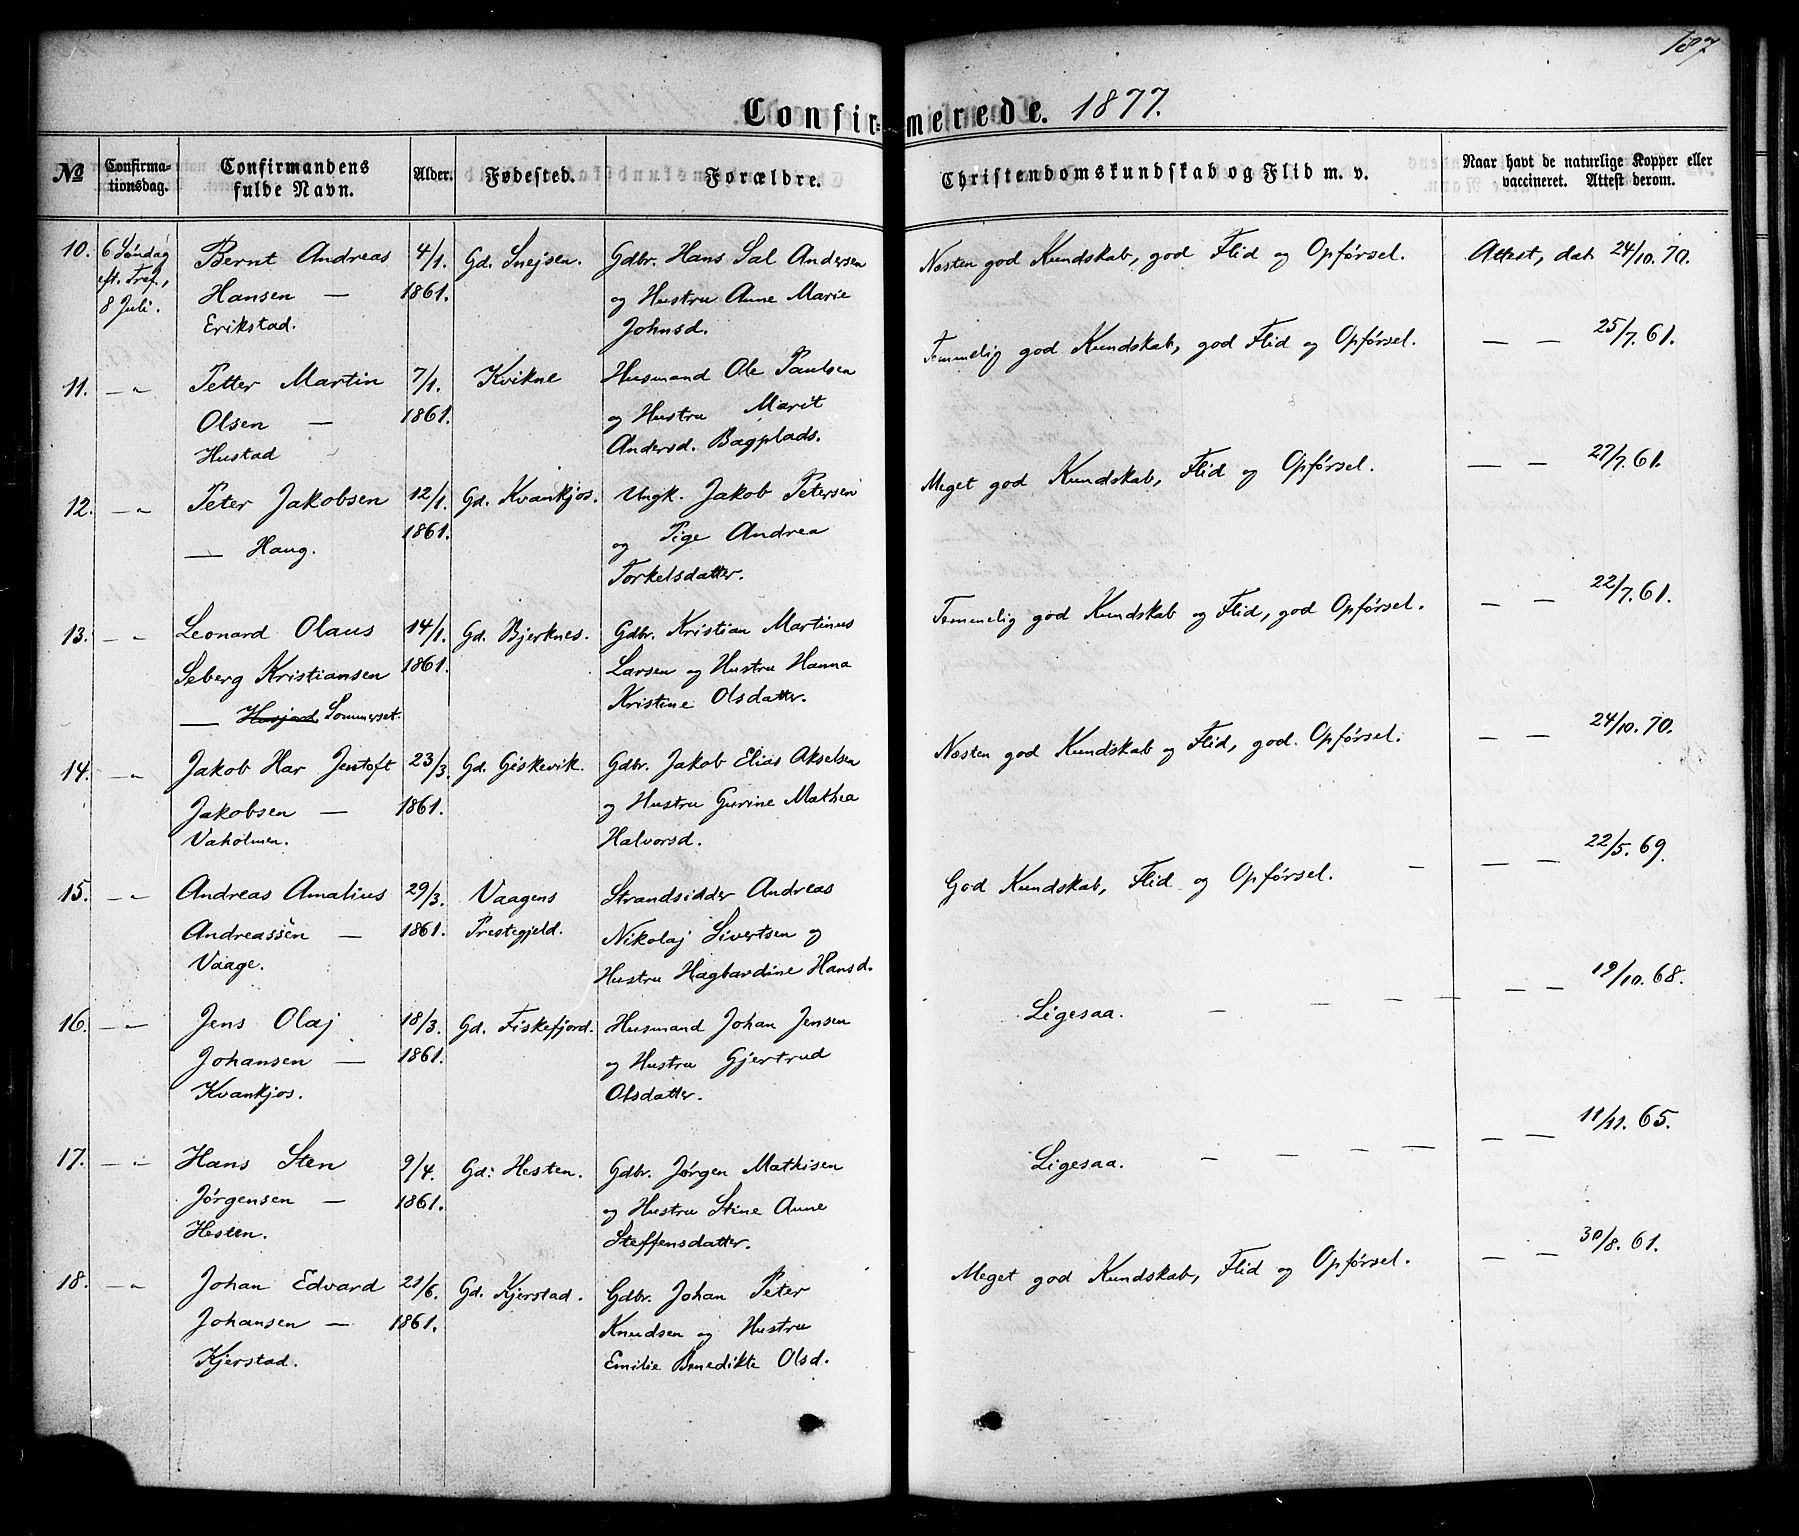 187
Confirmerede. 1877.
№ Confirmationsdag. Confirmandens fulde Navn. Alder. Fødested. Forældre. Christendomskundskab og Flid m. v. Naar havt de naturlige Kopper eller vaccineret. Attest derom.
10. 6 Søndag Bernt Andreas 4/1. Gd. Snejsen. Gdbr. Hans Sal Andersen Næsten god Kundskab, god Flid og Opførsel. Attest, dat. 24/10. 70.
eft. Tref., Hansen — 1861. og Hustru Anne Marie
8 Juli. Erikstad. Johnsd.
11. — „ Petter Martin 7/1. Kvikne Husmand Ole Paulsen Temmelig god Kundskab, god Flid og Opførsel. — — 25/7. 61.
Olsen — 1861. og Hustru Marit
Hustad Andersd. Bagplads.
12. — „ Peter Jakobsen 12/1. Gd. Kvankjos. Ungk. Jakob Petersen Meget god Kundskab, Flid og Opførsel. — — 27/7. 61.
— Haug. 1861. og Pige Andrea
Torkelsdatter.
13. — „ Leonard Olaus 14/1. Gd. Bjerknes. Gdbr. Kristian Martinus Temmelig god Kundskab og Flid, god Opførsel. — — 22/7. 61.
Seberg Kristiansen 1861. Larsen og Hustru Hanna
— Husjord Sommerset. Kristine Olsdatter.
14. — „ Jakob Har Jentoft 23/3. Gd. Giskevik. Gdbr. Jakob Elias Akselsen Næsten god Kundskab og Flid, god Opførsel. — — 24/10. 70.
Jakobsen — 1861. og Hustru Gurine Mathea
Vaholmen. Halvorsd.
15. — „ Andreas Amalius 29/3. Vaagens Strandsidder Andreas God Kundskab, Flid og Opførsel. — — — 22/5. 69.
Andreassen — 1861. Prestegjeld. Nikolaj Sivertsen og
Vaage. Hustru Hagbardine Hansd.
16. — „ Jens Olaj 18/3. Gd. Fiskefjord. Husmand Johan Jensen Ligesaa. — — — — — — 19/10. 68.
Johansen — 1861. og Hustru Gjertrud
Kvankjos. Olsdatter.
17. — „ Hans Sten 9/4. Gd. Hesten. Gdbr. Jørgen Mathisen Ligesaa. — — — — — — 11/11. 65.
Jørgensen — 1861. og Hustru Stine Anne
Hesten. Steffensdatter.
18. — „ Johan Edvard 21/6. Gd. Kjerstad. Gdbr. Johan Peter Meget god Kundskab, Flid og Opførsel. — — 30/8. 61.
Johansen — 1861. Knudsen og Hustru
Kjerstad. Emilie Benedikte Olsd.